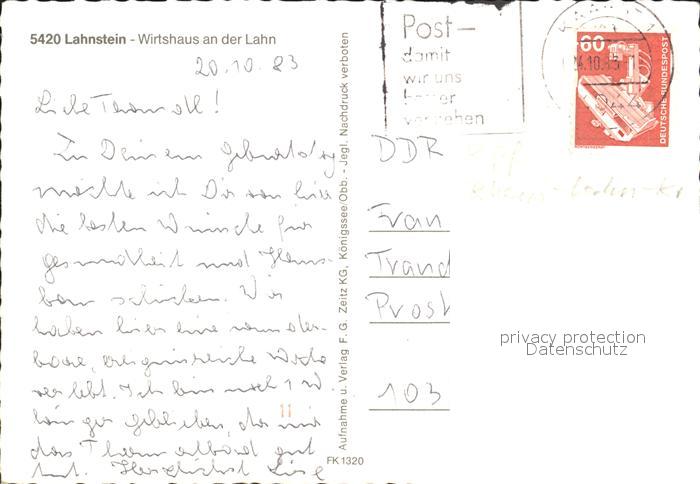 5420 Lahnstein - Wirtshaus an der Lahn
20.10.83
Liebe Traudl!
Zu Deinem Geburtstag
möchte ich Dir von hier
die besten Wünsche für
Gesundheit und
schicken. Wir
haben hier eine wunder-
bare, ereignisreiche Woche
verlebt. Ich bin noch 1 W.
länger geblieben, da mir
das Thermalbad gut
tut. Herzlichst
Aufnahme u. Verlag F. G. Zeitz KG, Königssee/Obb. - Jegl. Nachdruck verboten
FK 1320
11
Post-
damit
wir uns
besser
verstehen
10.83
60
DEUTSCHE BUNDESPOST
RÖNTGENGERÄT
DDR
Frau
Traud
Prost
103
privacy protection
Datenschutz